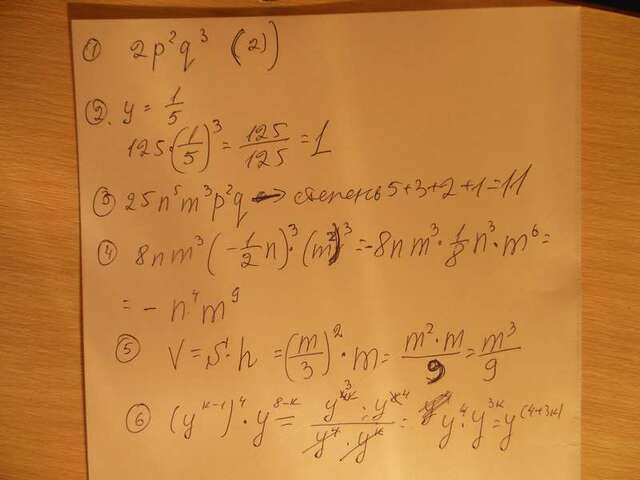 ① 2p²q³ (2)
②. y = 1/5
125·(1/5)³ = 125/125 = 1
③ 25n⁵m³p²q → степень 5+3+2+1=11
④ 8nm³(-1/2n)³·(m²)³ = -8nm³·1/8n³·m⁶ =
= - n⁴m⁹
⑤ V = S·h = (m/3)²·m = m²·m/9 = m³/9
⑥ (y^(k-1))⁴·y^(8-k) = y⁴·y^(3k) = y^(4+3k)